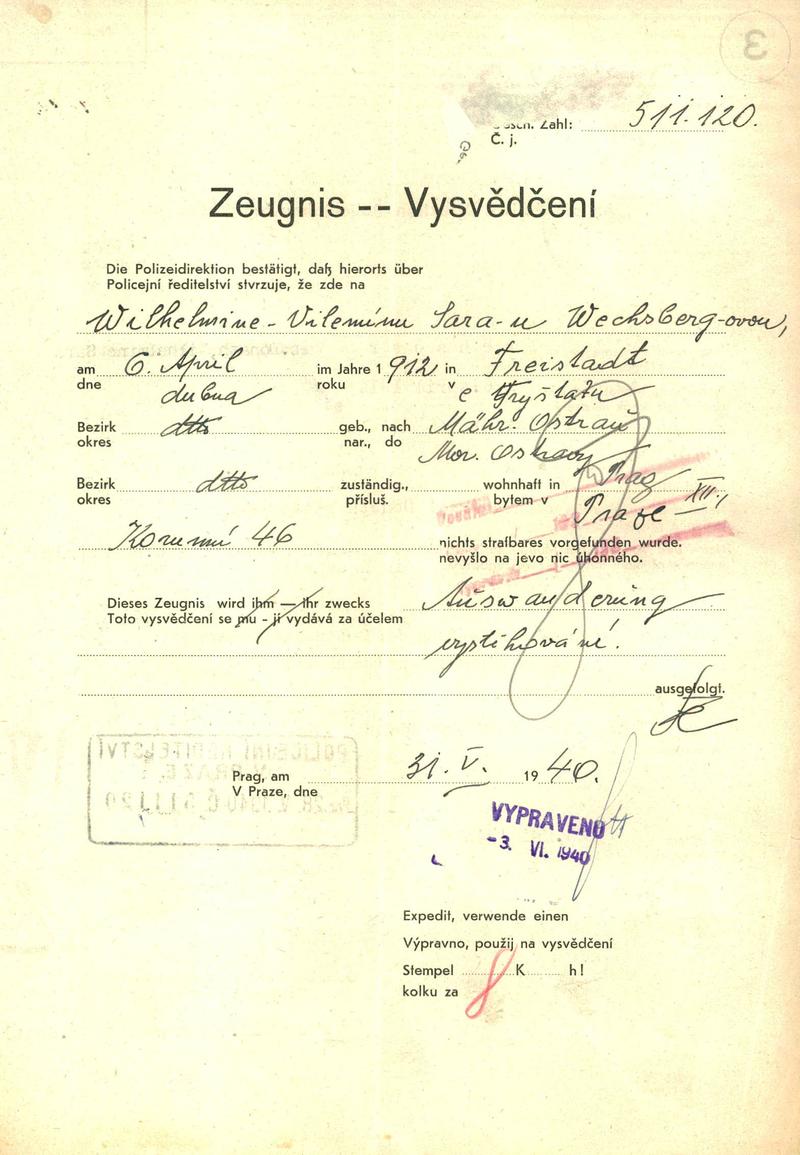 3
Gesch. Zahl: 511.120.
Č. j.
Zeugnis -- Vysvědčení
Die Polizeidirektion bestätigt, daß hierorts über
Policejní ředitelství stvrzuje, že zde na
Wilhelmine - Vilemínu Sara-u Wechsberg-ovou,
am 6. April im Jahre 1912 in Freistadt
dne dubna roku v e Fryštatu
Bezirk dtto geb., nach Mähr. Ostrau
okres nar., do Mor. Ostravy
Bezirk dtto zuständig., wohnhaft in Prag
okres přísluš. bytem v Praze XII.,
Korunní 46 nichts strafbares vorgefunden wurde.
nevyšlo na jevo nic úhonného.
Dieses Zeugnis wird ihm — ihr zwecks Auswanderung
Toto vysvědčení se mu - jí vydává za účelem
vystěhování.
ausgefolgt.
POLICEJNÍ ŘEDITELSTVÍ
V PRAZE
Prag, am 31. V. 1940.
V Praze, dne
VYPRAVENO
-3. VI. 1940
Expedit, verwende einen
Výpravno, použij na vysvědčení
Stempel 8 K h!
kolku za